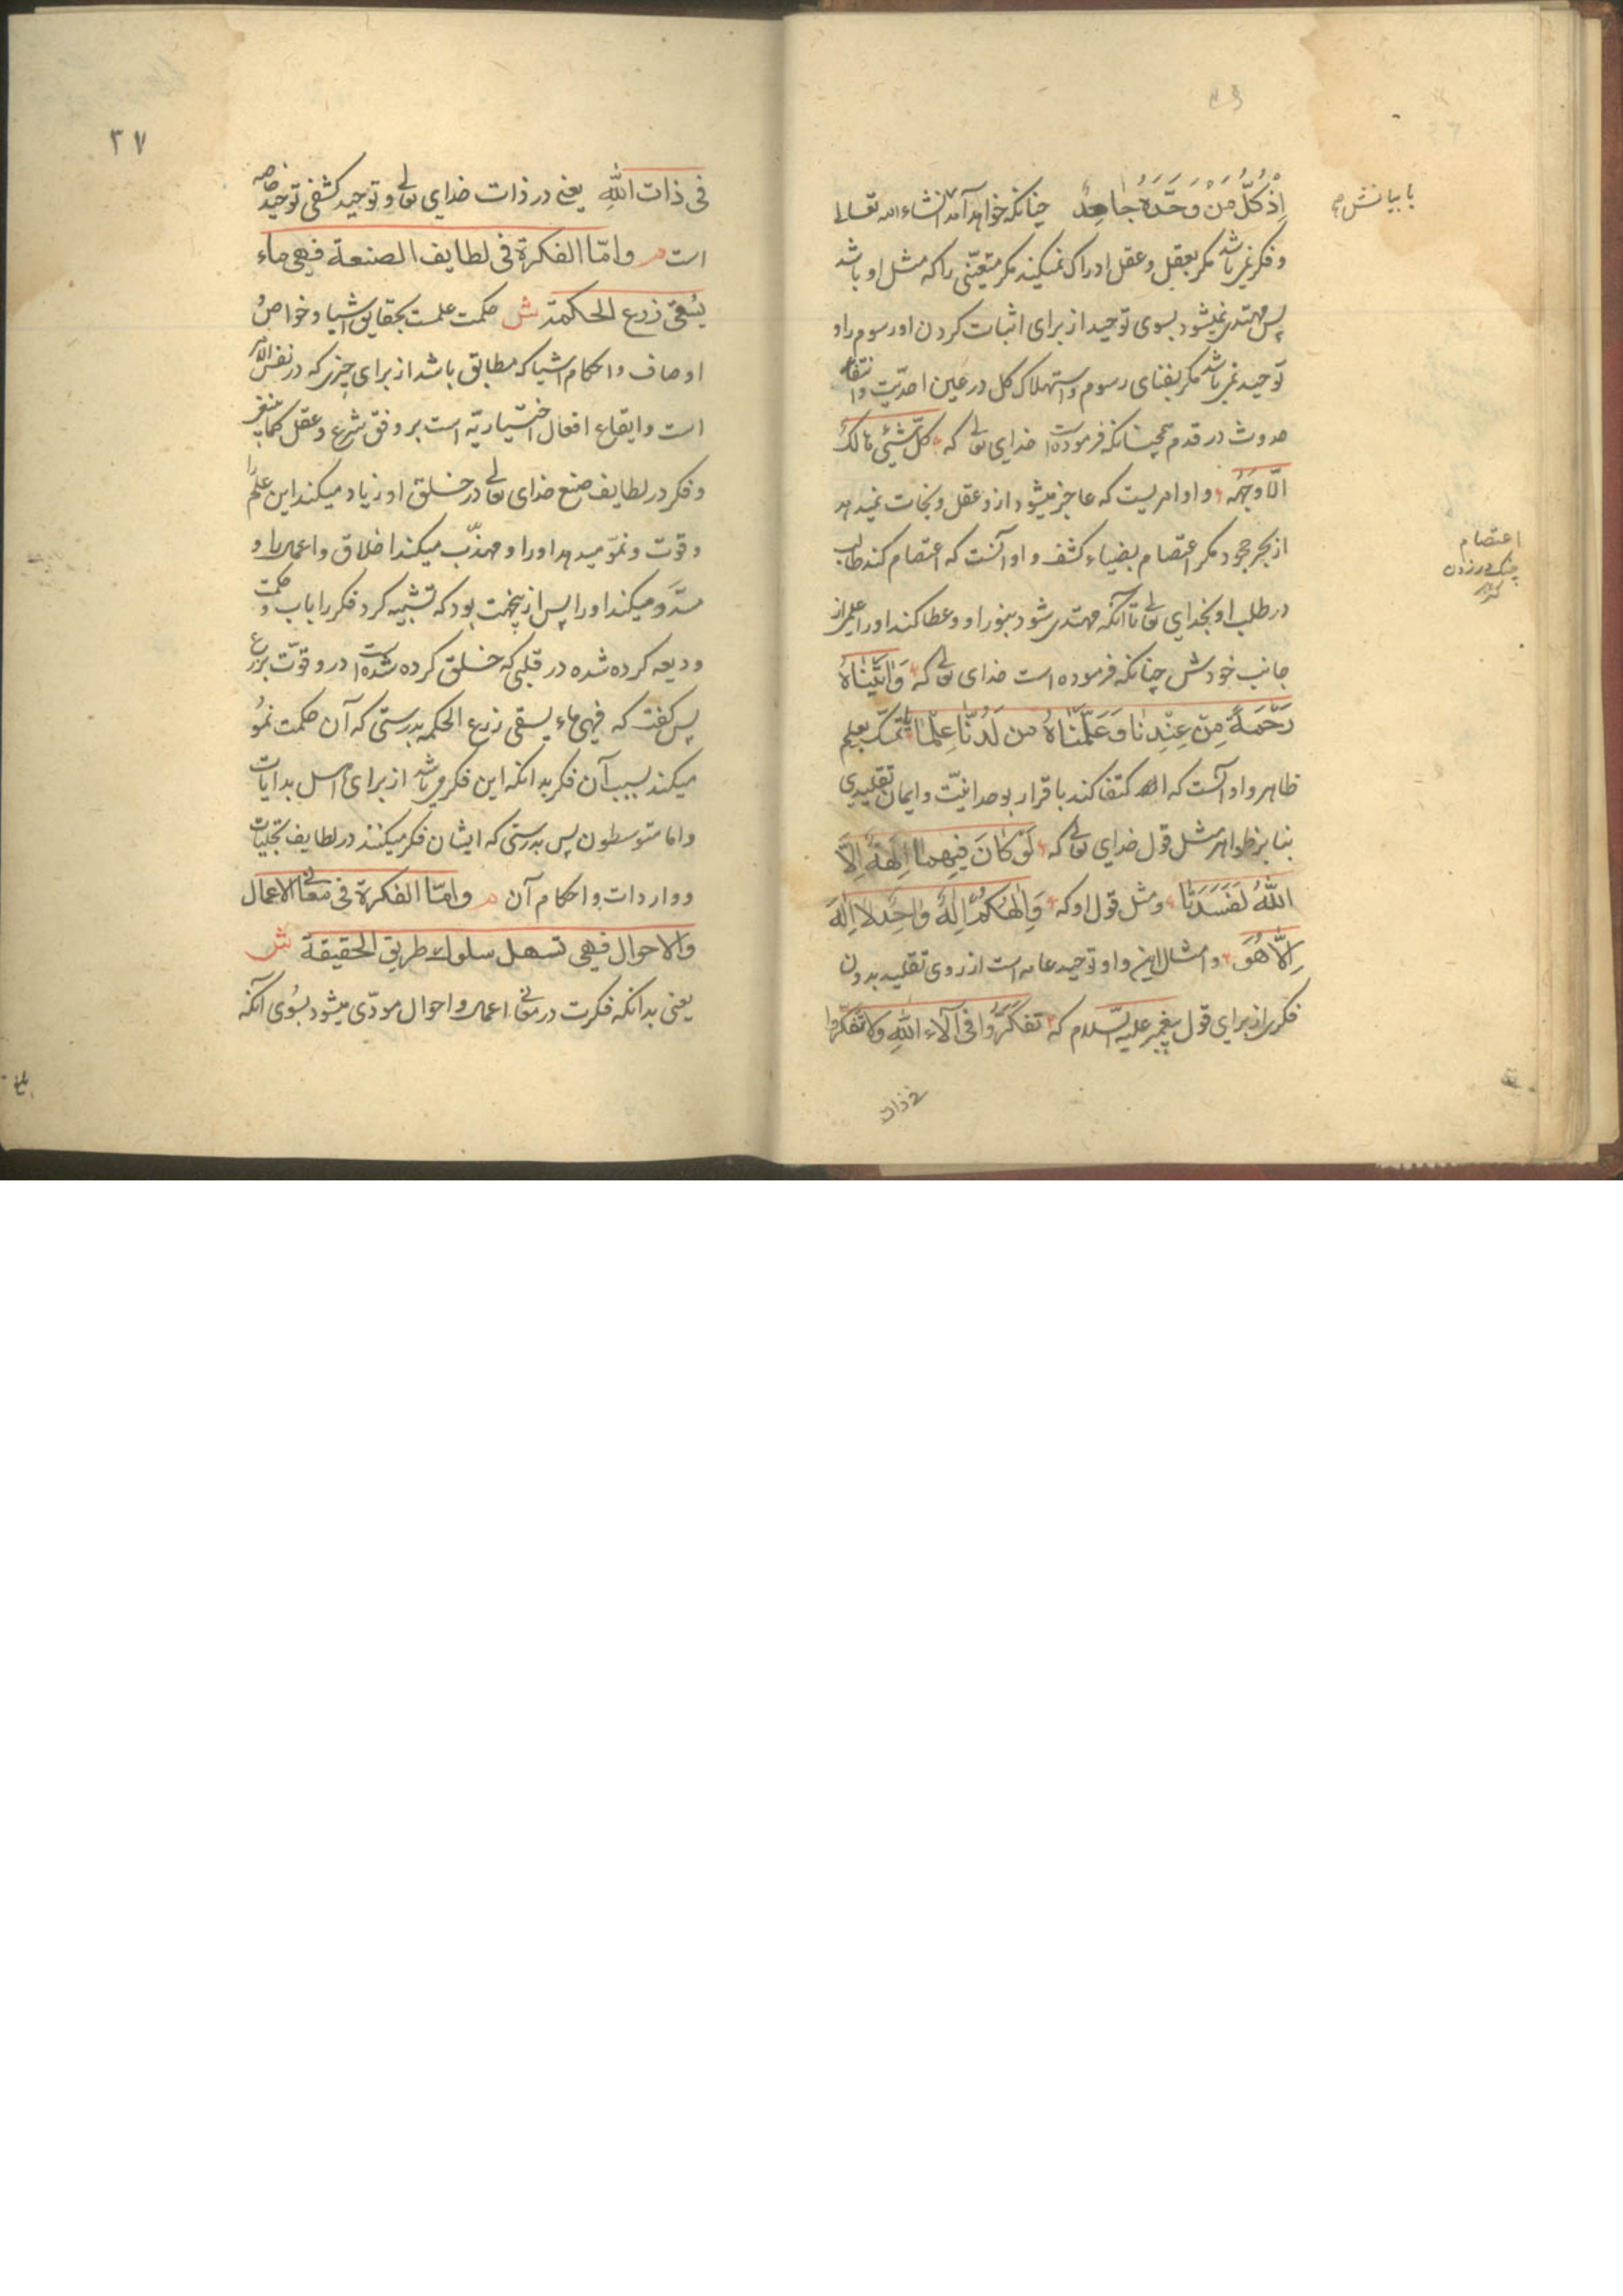 اِذْ كُلُّ مَنْ وَحَّدَهُ جٰاحِدٌ چنانکه خواهد آمد انشاء الله تعالی
با بیانش
و فکر نمی باشد مکر بعقل و عقل ادراک نمیکند مکر متعیّنی را که مثل او باشد
پس مهتدی نمیشود بسوی توحید از برای اثبات کردن او رسوم را و
توحید نمی باشد مکر بفنای رسوم و استهلاک کل در عین احدیّت و انتفاء
حدوث در قدم همچنانکه فرموده است خدای تعالی که کلّ شیئ هالک
الّا وجهه و او امریست که عاجز میشود ازو عقل و نجات نمیدهد
از بحر جحود مکر اعتصام بضیاء کشف و او آنست که اعتصام کند طالب
اعتصام
چنک در زدن
در طلب او بخدای تعالی تا آنکه مهتدی شود بنور او و عطا کند او را علمی از
جانب خودش چنانکه فرموده است خدای تعالی که وَاٰتَیْنٰاهُ
رَحْمَةً مِنْ عِنْدِنٰا وَعَلَّمْنٰاهُ مِن لَدُنّٰا عِلْمًا تمسّک بعلم
ظاهر و او آنست که اکتفا کند باقرار بوحدانیّت و ایمان تقلیدی
بنا بر ظواهر مثل قول خدای تعالی که لَوْ كٰانَ فِيهِمٰا اٰلِهَةٌ اِلَّا
اللّٰهُ لَفَسَدَتٰا و مثل قول او که وَاِلٰهُكُمْ اِلٰهٌ وٰاحِدٌ لا اِلٰهَ
اِلَّا هُوَ و امثال این و او توحید عامه است از روی تقلید بدون
فکری از برای قول پیغمبر علیه السّلام که تفکّروا فی آلاء اللهِ ولا تفکّروا
فی ذات
۳۷
فی ذات اللّٰهِ یعنی در ذات خدای تعالی و توحید کشفی توحید خاصه
است م و امّا الفکرة فی لطایف الصنعة فهی ماء
یُسْقی زرع الحکمة ش حکمت علمست بحقایق اشیا و خواصّ
اوصاف و احکام اشیا که مطابق باشد از برای چیزی که در نفس الامر
است و ایقاع افعال اختیاریّه است بر وفق شرع و عقل کما ینبغی
و فکر در لطایف صنع خدای تعالی در خلق او زیاد میکند این علم را
و قوّت و نموّ میدهد او را و مهذّب میکند اخلاق و اعمال را و
میکند او را پس ازینجهت بود که تشبیه کرد فکر را باب و حکمت
ودیعه کرده شده در قلبی که خلق کرده شده است درو قوّت بزرع
پس کفت که فهی ماء یسقی زرع الحکمه بدرستی که آن حکمت نموّ
میکند بسبب آن فکر بدانکه این فکر می باشد از برای اهل بدایات
و اما متوسطون پس بدرستی که ایشان فکر میکنند در لطایف تجلیات
و واردات و احکام آن م و امّا الفکرة فی معانی الاعمال
والاحوال فهی تسهل سلوک طریق الحقیقة ش
یعنی بدانکه فکرت در معانی اعمال و احوال مودّی میشود بسوی آنکه